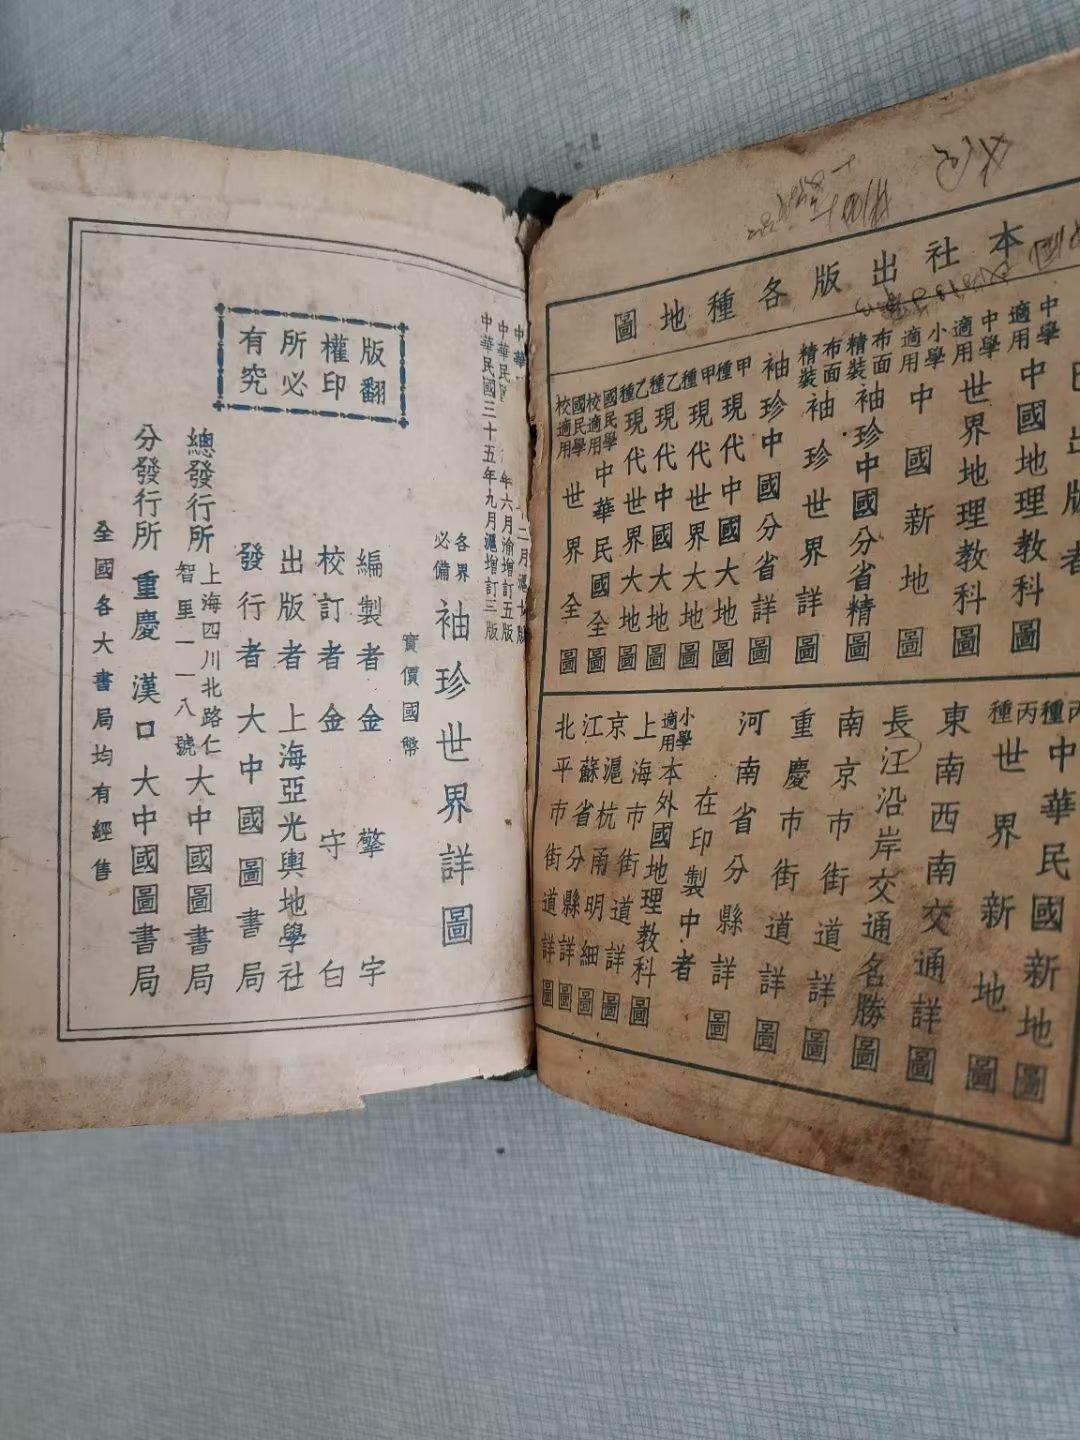 本社出版各種地圖
已出版者
中學適用中國地理教科圖
中學適用世界地理教科圖
小學適用中國新地圖
布面精裝袖珍中國分省精圖
布面精裝袖珍世界詳圖
袖珍中國分省詳圖
甲種現代中國大地圖
甲種現代世界大地圖
乙種現代中國大地圖
乙種現代世界大地圖
國民學校適用中華民國全圖
國民學校適用世界全圖
丙種中華民國新地圖
丙種世界新地圖
東南西南交通詳圖
長江沿岸交通名勝圖
南京市街道詳圖
重慶市街道詳圖
河南省分縣詳圖
在印製中者
小學適用本外國地理教科圖
上海市街道詳圖
京滬杭甬明細圖
江蘇省分縣詳圖
北平市街道詳圖
中華
中華民國 年六月渝增訂五版
中華民國三十五年九月滬增訂三版
各界必備袖珍世界詳圖
實價國幣
版權所有
翻印必究
編製者金擎宇
校訂者金守白
出版者上海亞光輿地學社
發行者大中國圖書局
總發行所上海四川北路仁智里一一八號大中國圖書局
分發行所重慶漢口大中國圖書局
全國各大書局均有經售